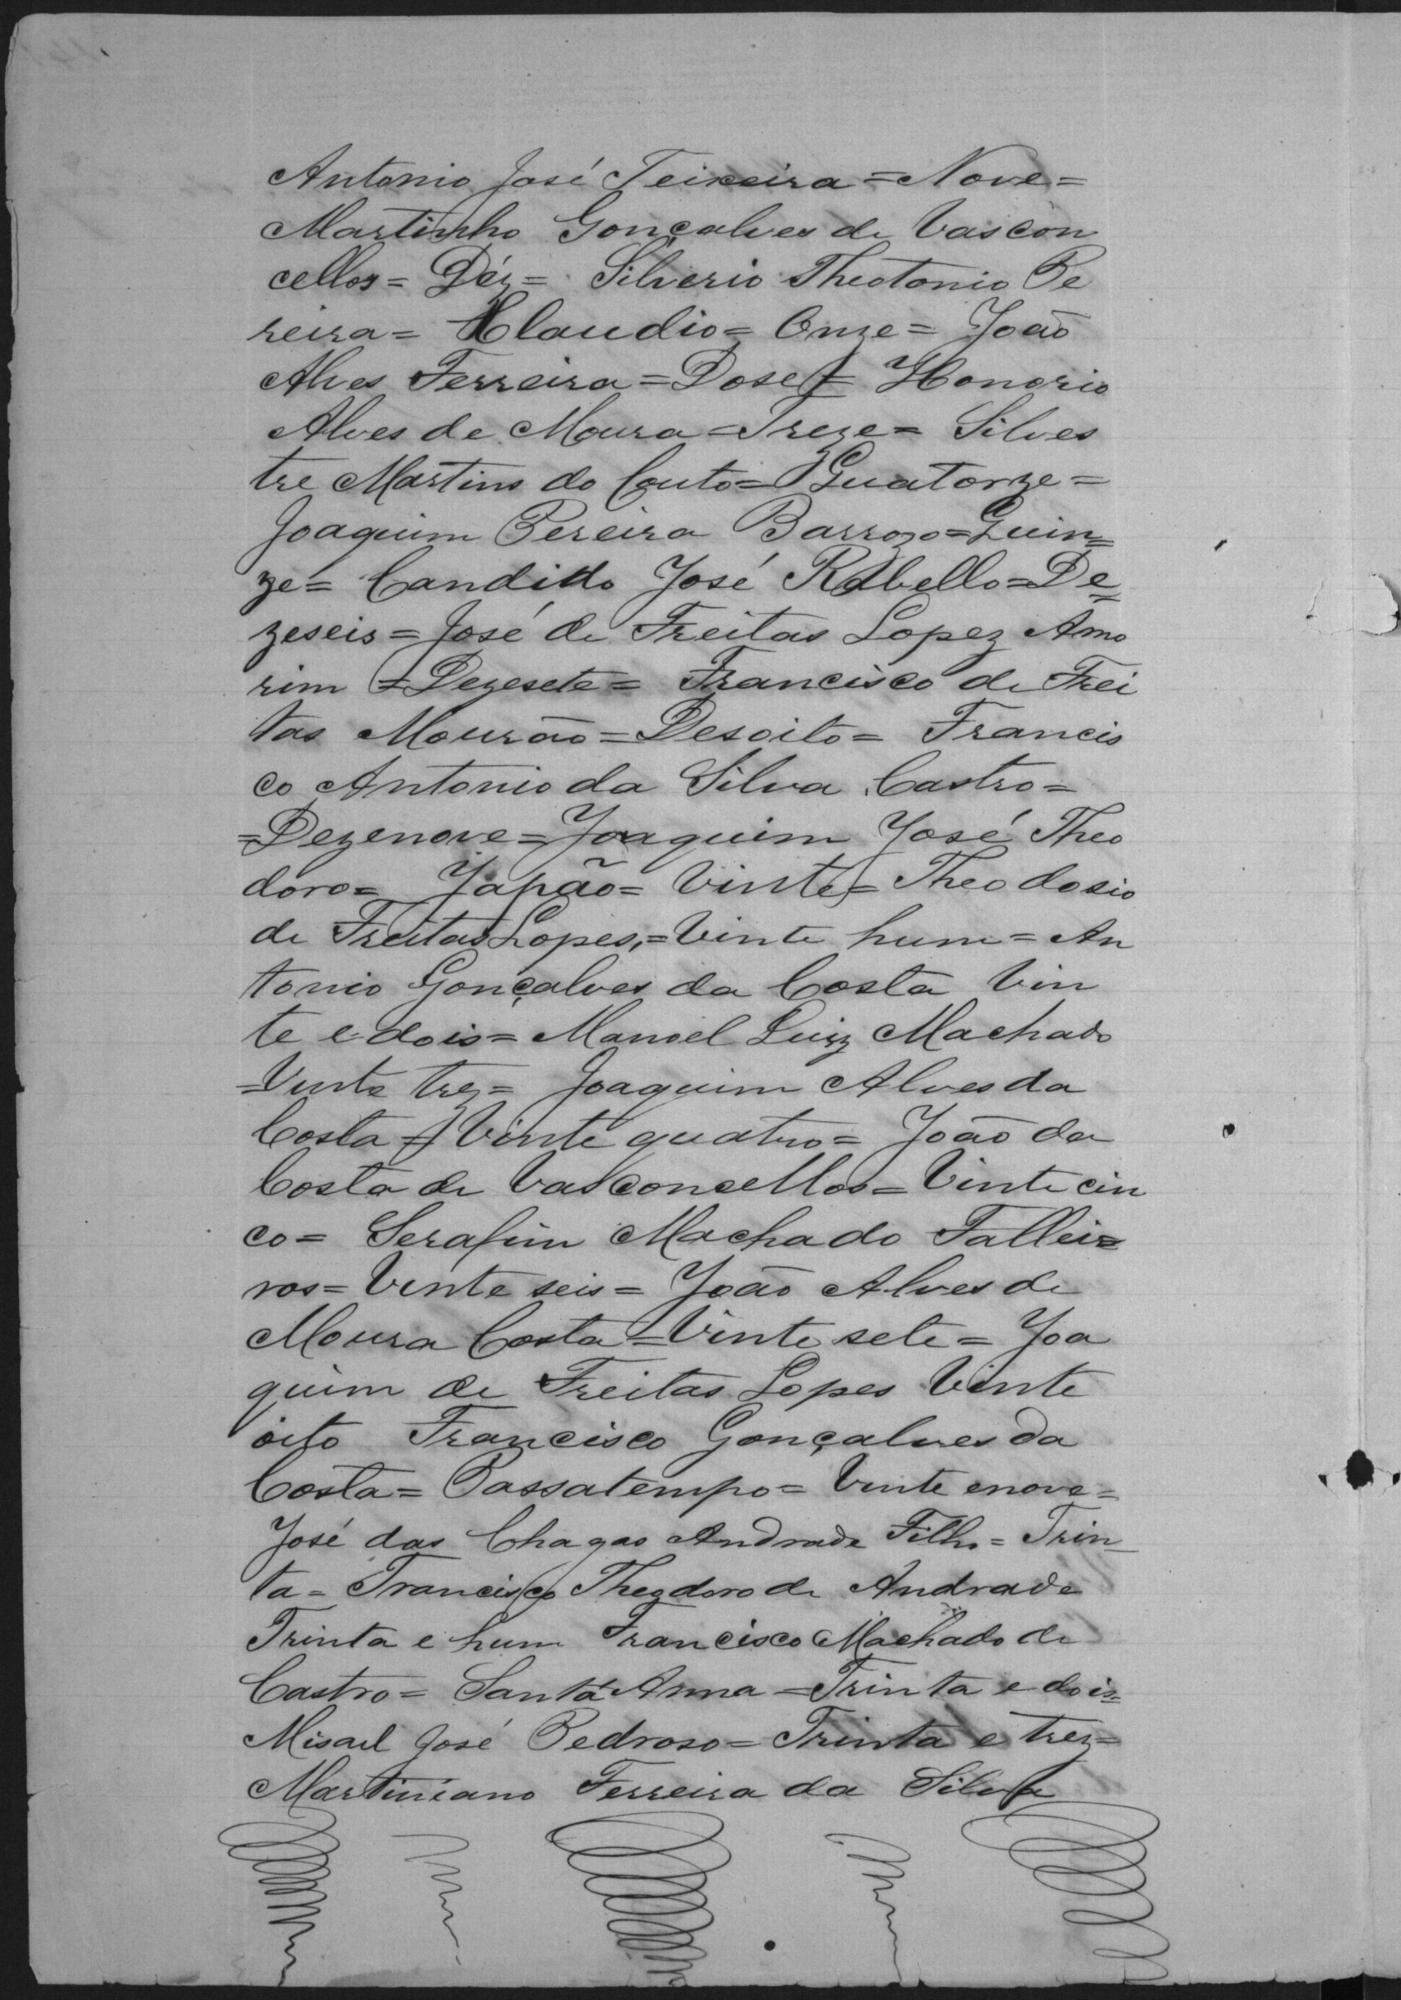 Antonio José Teixeira = Nove =
Martinho Gonçalves de Vascon
cellos = Déz = Silverio Theotonio Pe
reira = Claudio = Onze = João
Alves Ferreira = Dose = Honorio
Alves de Moura = Treze = Silves
tre Martins do Couto = Quatorze =
Joaquim Pereira Barrozo = Quin=
ze = Candido José Rebello = De=
zeseis = José de Freitas Lopez Amo
rim = Dezesete = Francisco de Frei
tas Mourão = Desoito = Francis
co Antonio da Silva Castro =
= Dezenove = Joaquim José Theo
doro = Japão = Vinte = Theodosio
de Freitas Lopes, = Vinte hum = An
tonio Gonçalves da Costa Vin
te e dois = Manoel Luiz Machado
= Vinte trez = Joaquim Alves da
Costa = Vinte quatro = João da
Costa de Vasconcellos = Vinte cin
co = Serafim Machado Fallei=
ros = Vinte seis = João Alves de
Moura Costa = Vinte sete = Joa
quim de Freitas Lopes Vinte
oito Francisco Gonçalves da
Costa = Passatempo = Vinte e nove =
José das Chagas Andrade Filho = Trin
ta = Francisco Theodoro de Andrade
Trinta e hum Francisco Machado de
Castro = Santa Anna = Trinta e dois =
Misael José Pedroso = Trinta e trez =
Martiniano Ferreira da Silva